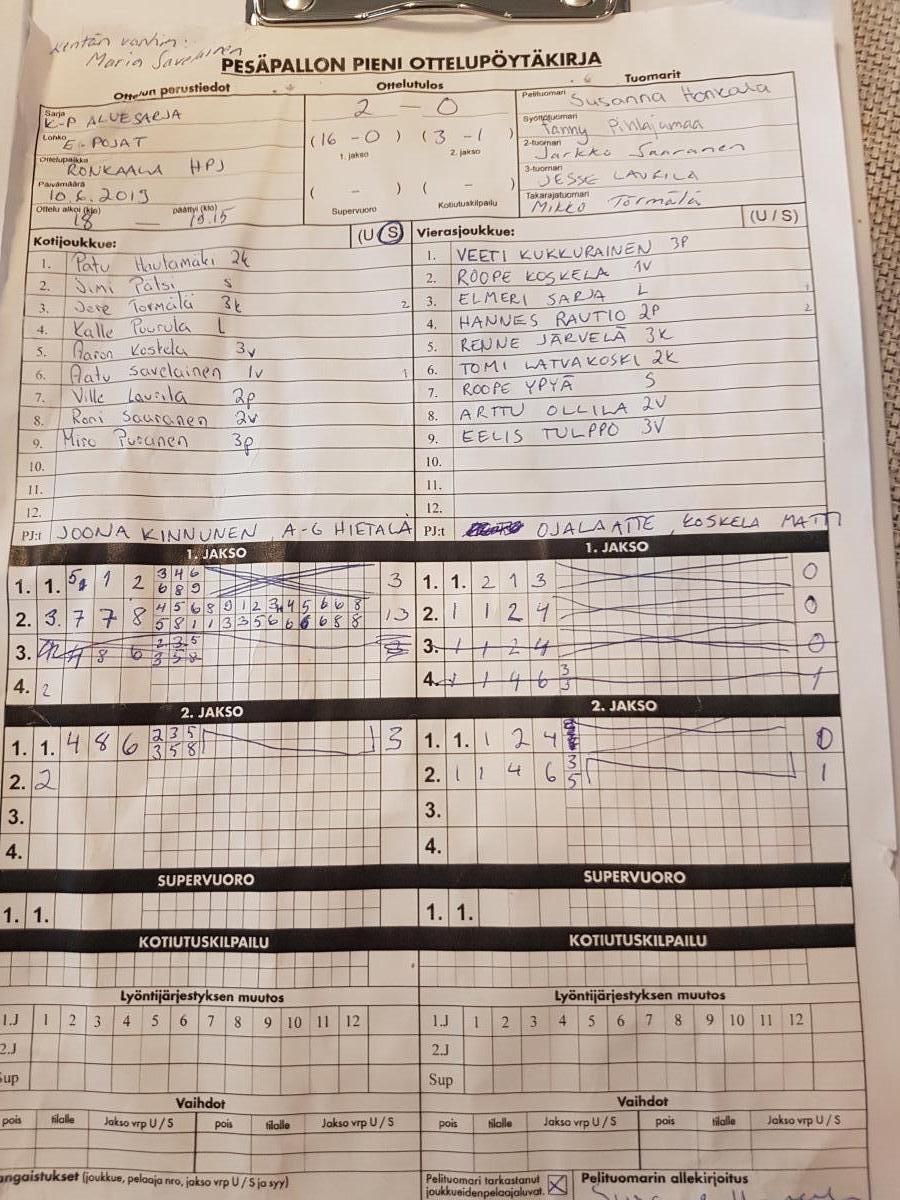 Kentän vanhin:
Maria Savelainen
PESÄPALLON PIENI OTTELUPÖYTÄKIRJA
Ottelun perustiedot
Ottelutulos
Tuomarit
Sarja
K-P ALUESARJA
Lohko
E-POJAT
Ottelupaikka
RONKAALA HPJ
Päivämäärä
10.6.2019
Ottelu alkoi (klo) päättyi (klo)
18 — 19.15
2 — 0
(16 - 0) (3 - 1)
1. jakso 2. jakso
( - ) ( - )
Supervuoro Kotiutuskilpailu
Pelituomari Susanna Honkala
Syöttötuomari
Fanny Pihlajamaa
2-tuomari
Jarkko Saaranen
3-tuomari
JESSE LAURILA
Takarajatuomari
Mikko Törmälä
Kotijoukkue: (U / S)
1. Patu Hautamäki 2k
2. Jimi Pätsi S
3. Jere Törmälä 3k 2
4. Kalle Puurula L
5. Aaron Koskela 3v
6. Aatu Savelainen 1v 1
7. Ville Laurila 2p
8. Roni Saaranen 2v
9. Miro Puranen 3p
10.
11.
12.
PJ:t JOONA KINNUNEN, A-G HIETALA
Vierasjoukkue: (U / S)
1. VEETI KUKKURAINEN 3P
2. ROOPE KOSKELA 1V
3. ELMERI SARJA L 1
4. HANNES RAUTIO 2P 2
5. RENNE JÄRVELÄ 3K
6. TOMI LATVAKOSKI 2K
7. ROOPE YPYÄ S
8. ARTTU OLLILA 2V
9. EELIS TULPPO 3V
10.
11.
12.
PJ:t OJALA ATTE, KOSKELA MATTI
1. JAKSO
1. 1. 5 1 2 3 4 6 3
6 8 9
2. 3. 7 7 8 4 5 6 8 9 1 2 3 4 4 5 6 6 8 13
5 8 1 1 3 3 5 6 6 6 6 8 8
3. 4 8 6 2 3 5 3
3 5 8
4. 2
1. JAKSO
1. 1. 2 1 3 0
2. 1 1 2 4 0
3. 1 1 2 4 0
4. 1 1 4 6 3 1
3
2. JAKSO
1. 1. 4 8 6 2 3 5 3
3 5 8
2. 2
3.
4.
2. JAKSO
1. 1. 1 2 4 0
2. 1 1 4 6 3 1
5
3.
4.
SUPERVUORO
1. 1.
SUPERVUORO
1. 1.
KOTIUTUSKILPAILU
KOTIUTUSKILPAILU
Lyöntijärjestyksen muutos
1.J 1 2 3 4 5 6 7 8 9 10 11 12
2.J
Sup
Lyöntijärjestyksen muutos
1.J 1 2 3 4 5 6 7 8 9 10 11 12
2.J
Sup
Vaihdot
pois tilalle Jakso vrp U / S pois tilalle Jakso vrp U / S
Vaihdot
pois tilalle Jakso vrp U / S pois tilalle Jakso vrp U / S
angaistukset (joukkue, pelaaja nro, jakso vrp U / S ja syy)
Pelituomari tarkastanut
joukkueidenpelaajaluvat.
Pelituomarin allekirjoitus